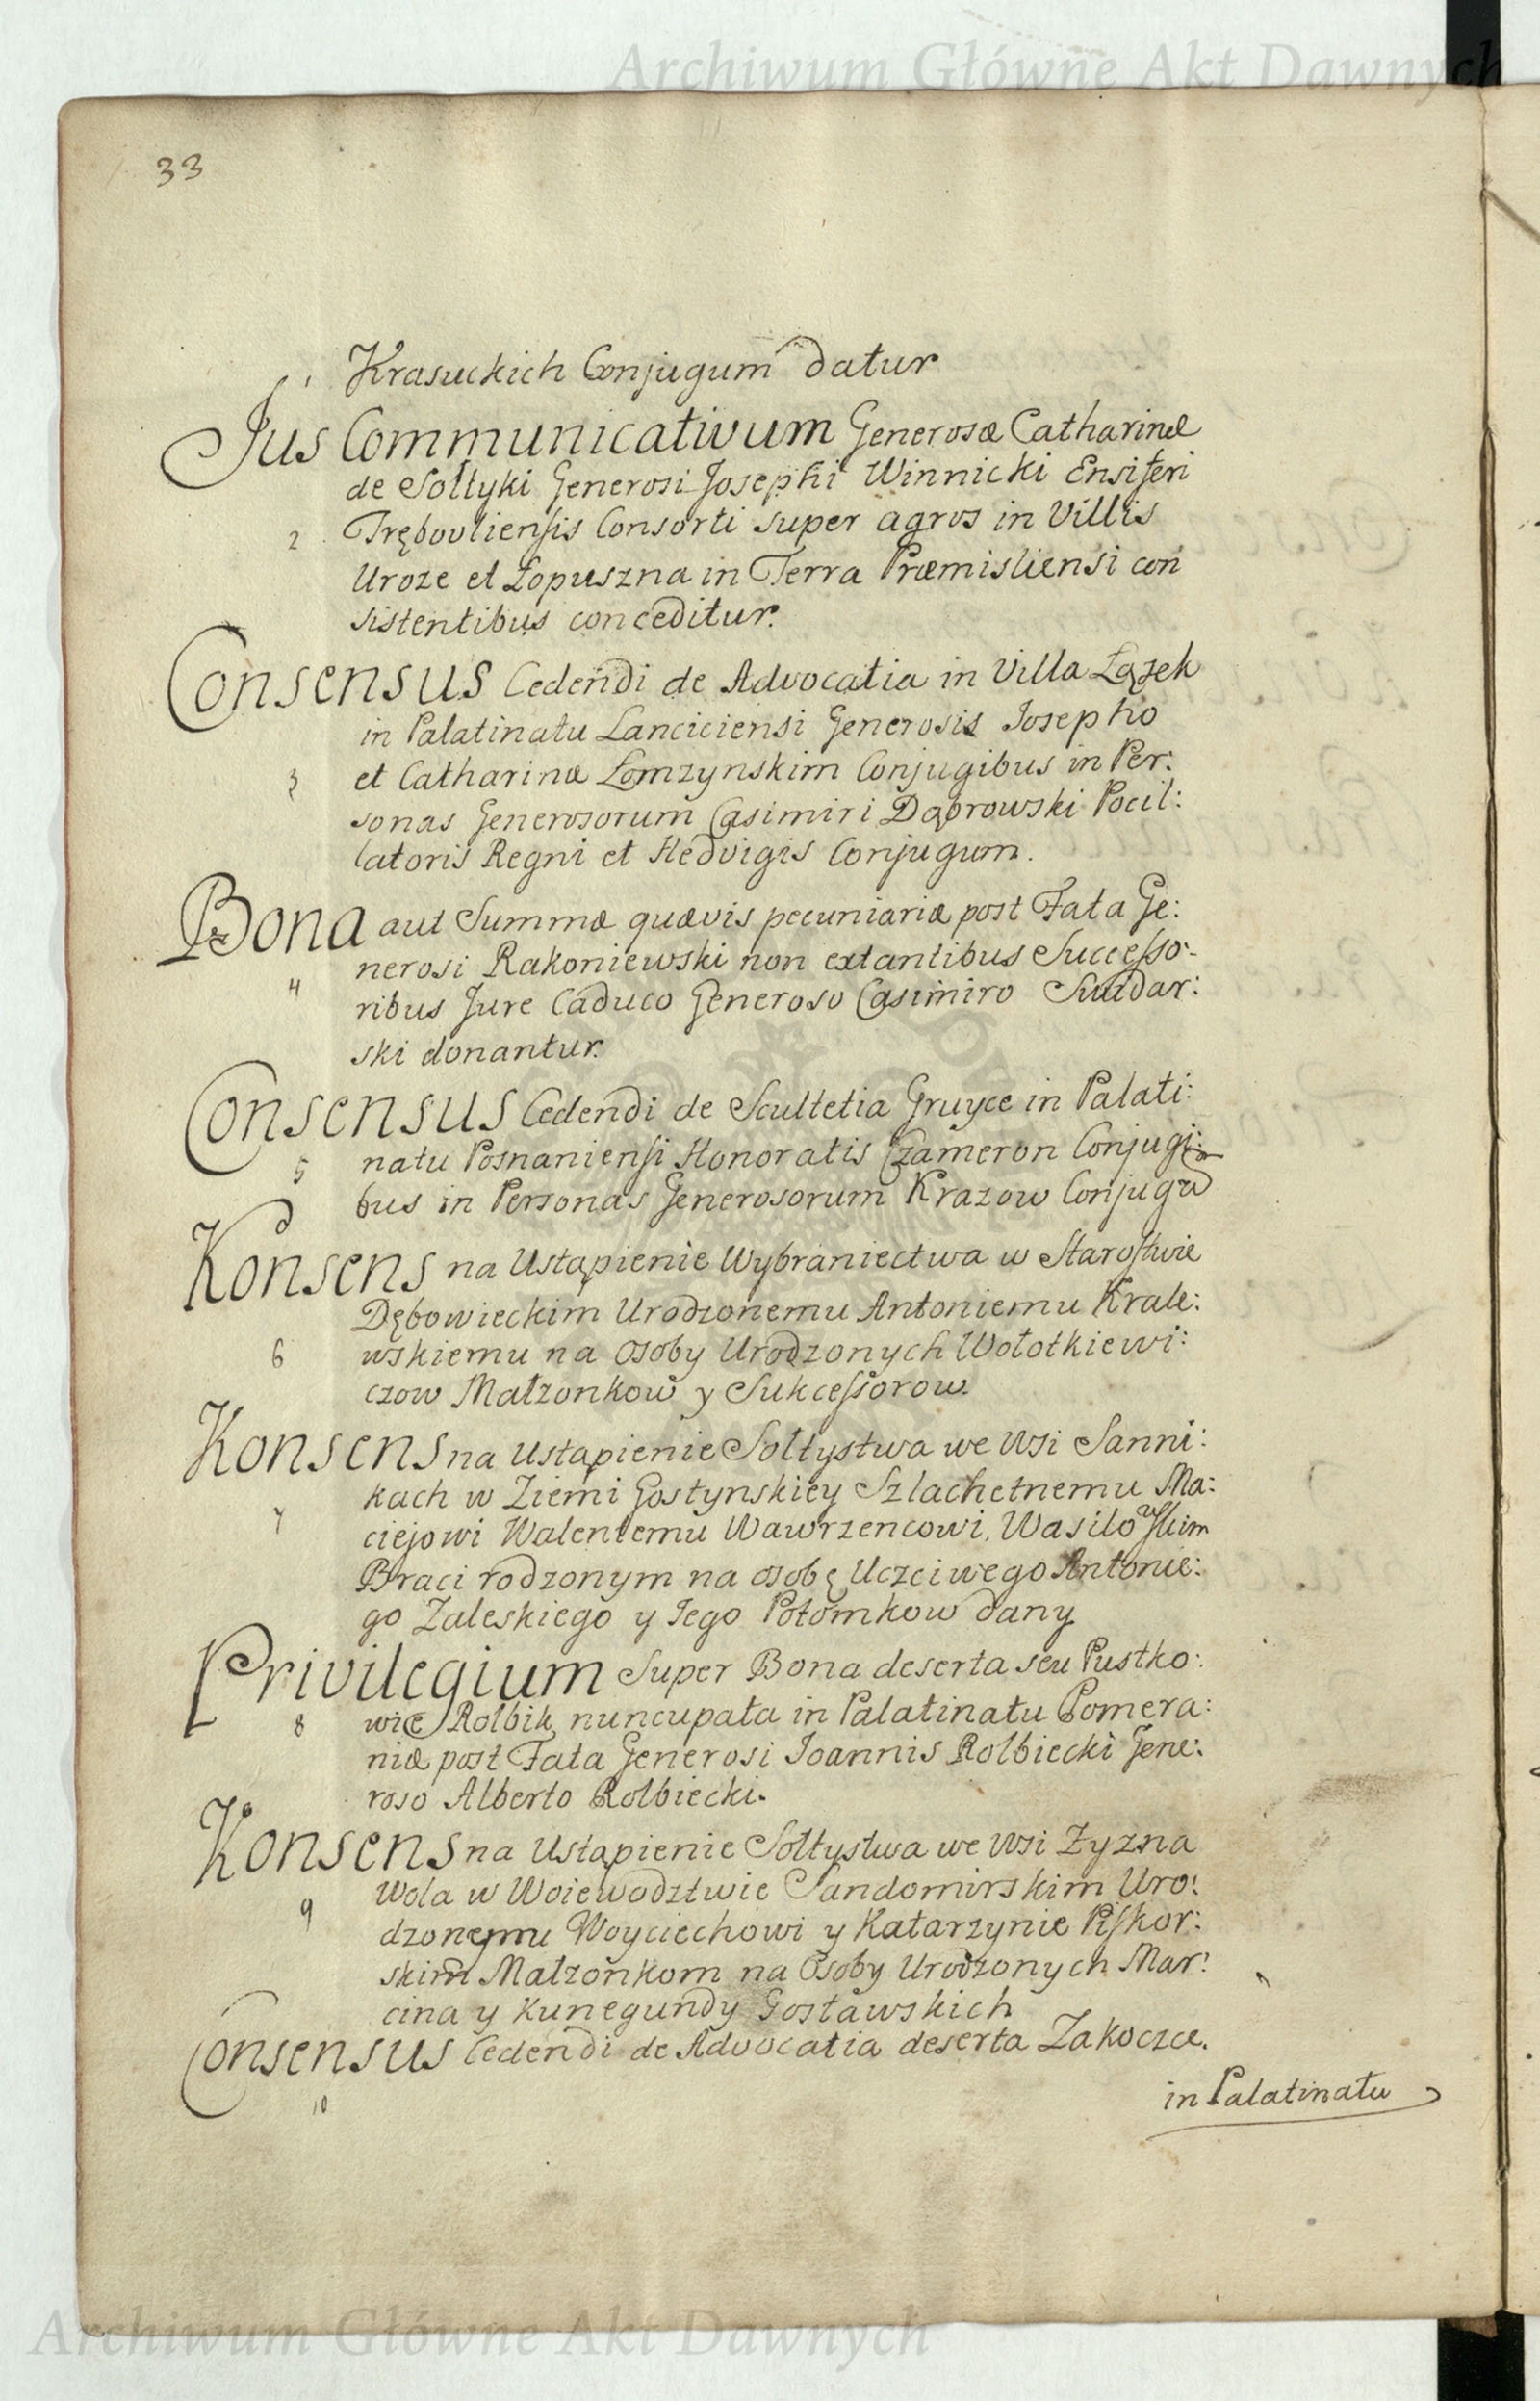 Archiwum Główne Akt Dawnych
33
1 Krasuckich Conjugum datur
Jus Communicativum Generosæ Catharinæ
de Sołtyki Generosi Josephi Winnicki Ensiferi
2 Trębovliensis Consorti super agros in Villis
Uroze et Łopuszna in Terra Præmisliensi con
sistentibus conceditur.
Consensus Cedendi de Advocatia in Villa Łązek
in Palatinatu Lanciciensi Generosis Josepho
3 et Catharinæ Łomzynskim Conjugibus in Per:
sonas Generosorum Casimiri Dąbrowski Pocil:
latoris Regni et Hedvigis Conjugum.
Bona aut Summæ quævis pecuniariæ post Fata Ge:
nerosi Rakoniewski non extantibus Successo-
4 ribus Jure Caduco Generoso Casimiro Swidar:
ski donantur.
Consensus Cedendi de Scultetia Gruyce in Palati:
5 natu Posnaniensi Honoratis Czameron Conjugi:
bus in Personas Generosorum Krazow Conjugũ
Konsens na Ustąpienie Wybraniectwa w Starostwie
Dębowieckim Urodzonemu Antoniemu Krale:
6 wskiemu na Osoby Urodzonych Wołotkiewi:
czow Małzonkow y Sukcessorow.
Konsens na Ustąpienie Sołtystwa we Wsi Sanni:
kach w Ziemi Gostynskiey Szlachetnemu Ma:
7 ciejowi Walentemu Wawrzencowi Wasilowskim
Braci rodzonym na osobę Uczciwego Antonie:
go Zaleskiego y Jego Potomkow dany
Privilegium Super Bona deserta seu Pustko:
8 wie Rolbik nuncupata in Palatinatu Pomera:
niæ post Fata Generosi Joannis Rolbiecki Gene:
roso Alberto Rolbiecki.
Konsens na Ustąpienie Sołtystwa we Wsi Zyzna
Wola w Woiewodztwie Sandomirskim Uro:
9 dzonemu Woyciechowi y Katarzynie Piskor:
skim Małzonkom na Osoby Urodzonych Mar:
cina y Kunegundy Gosławskich
Consensus Cedendi de Advocatia deserta Zakocze.
10
in Palatinatu
Archiwum Główne Akt Dawnych